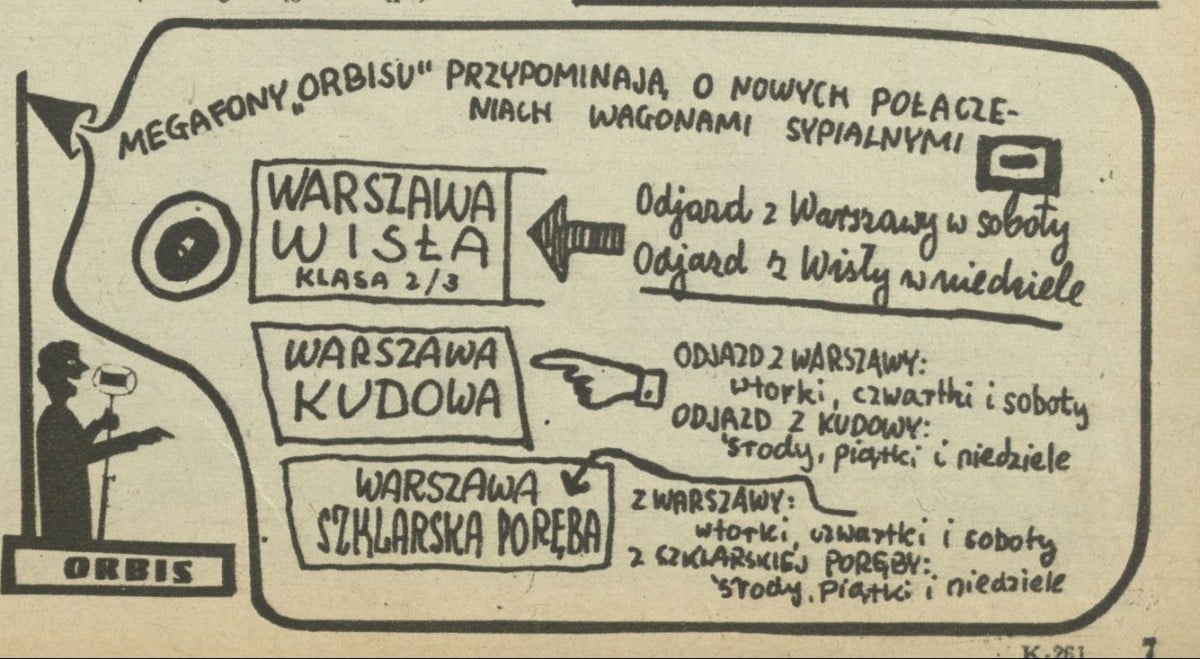 MEGAFONY „ORBISU" PRZYPOMINAJĄ O NOWYCH POŁĄCZE-
NIACH WAGONAMI SYPIALNYMI
WARSZAWA
WISŁA
KLASA 2/3
Odjazd z Warszawy w soboty
Odjazd z Wisły w niedziele
WARSZAWA
KUDOWA
ODJAZD Z WARSZAWY:
wtorki, czwartki i soboty
ODJAZD Z KUDOWY:
środy, piątki i niedziele
WARSZAWA
SZKLARSKA PORĘBA
Z WARSZAWY:
wtorki, czwartki i soboty
Z SZKLARSKIEJ PORĘBY:
środy, piątki i niedziele
ORBIS
K-261
7